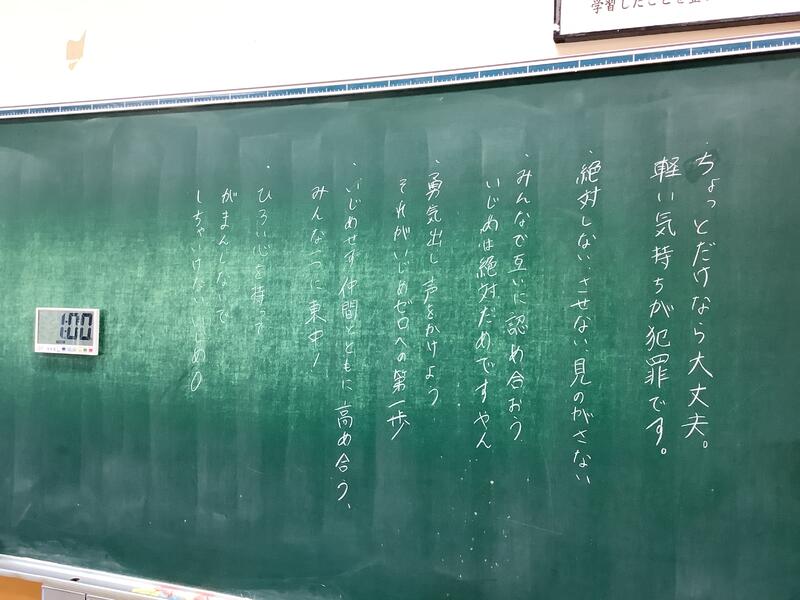 学習したことを
・ちょっとだけなら大丈夫。
軽い気持ちが犯罪です。
・絶対しない、させない、見のがさない
・みんなで互いに認め合おう
いじめは絶対だめですやん
・勇気出し声をかけよう
それがいじめゼロへの第一歩
・いじめせず仲間とともに高め合う、
みんな一つに東中!
・ひろい心を持って
がまんしないで
しちゃいけない いじめ0
1:00